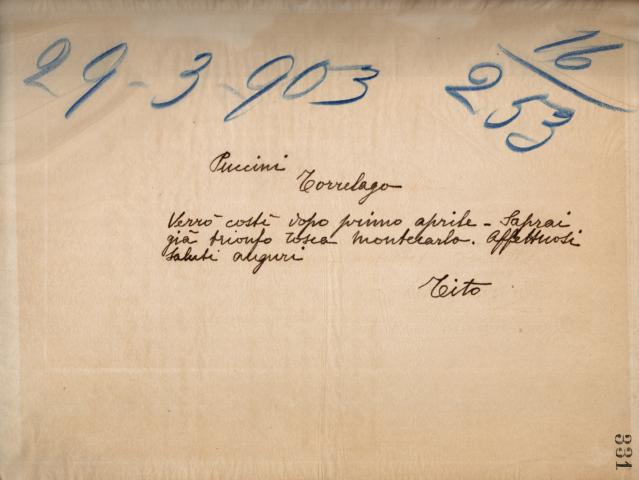 29-3-903
16
253
Puccini
Torrelago
Verrò costì dopo primo aprile - Saprai
già trionfo Tosca Montecarlo. Affettuosi
saluti auguri
Tito
331